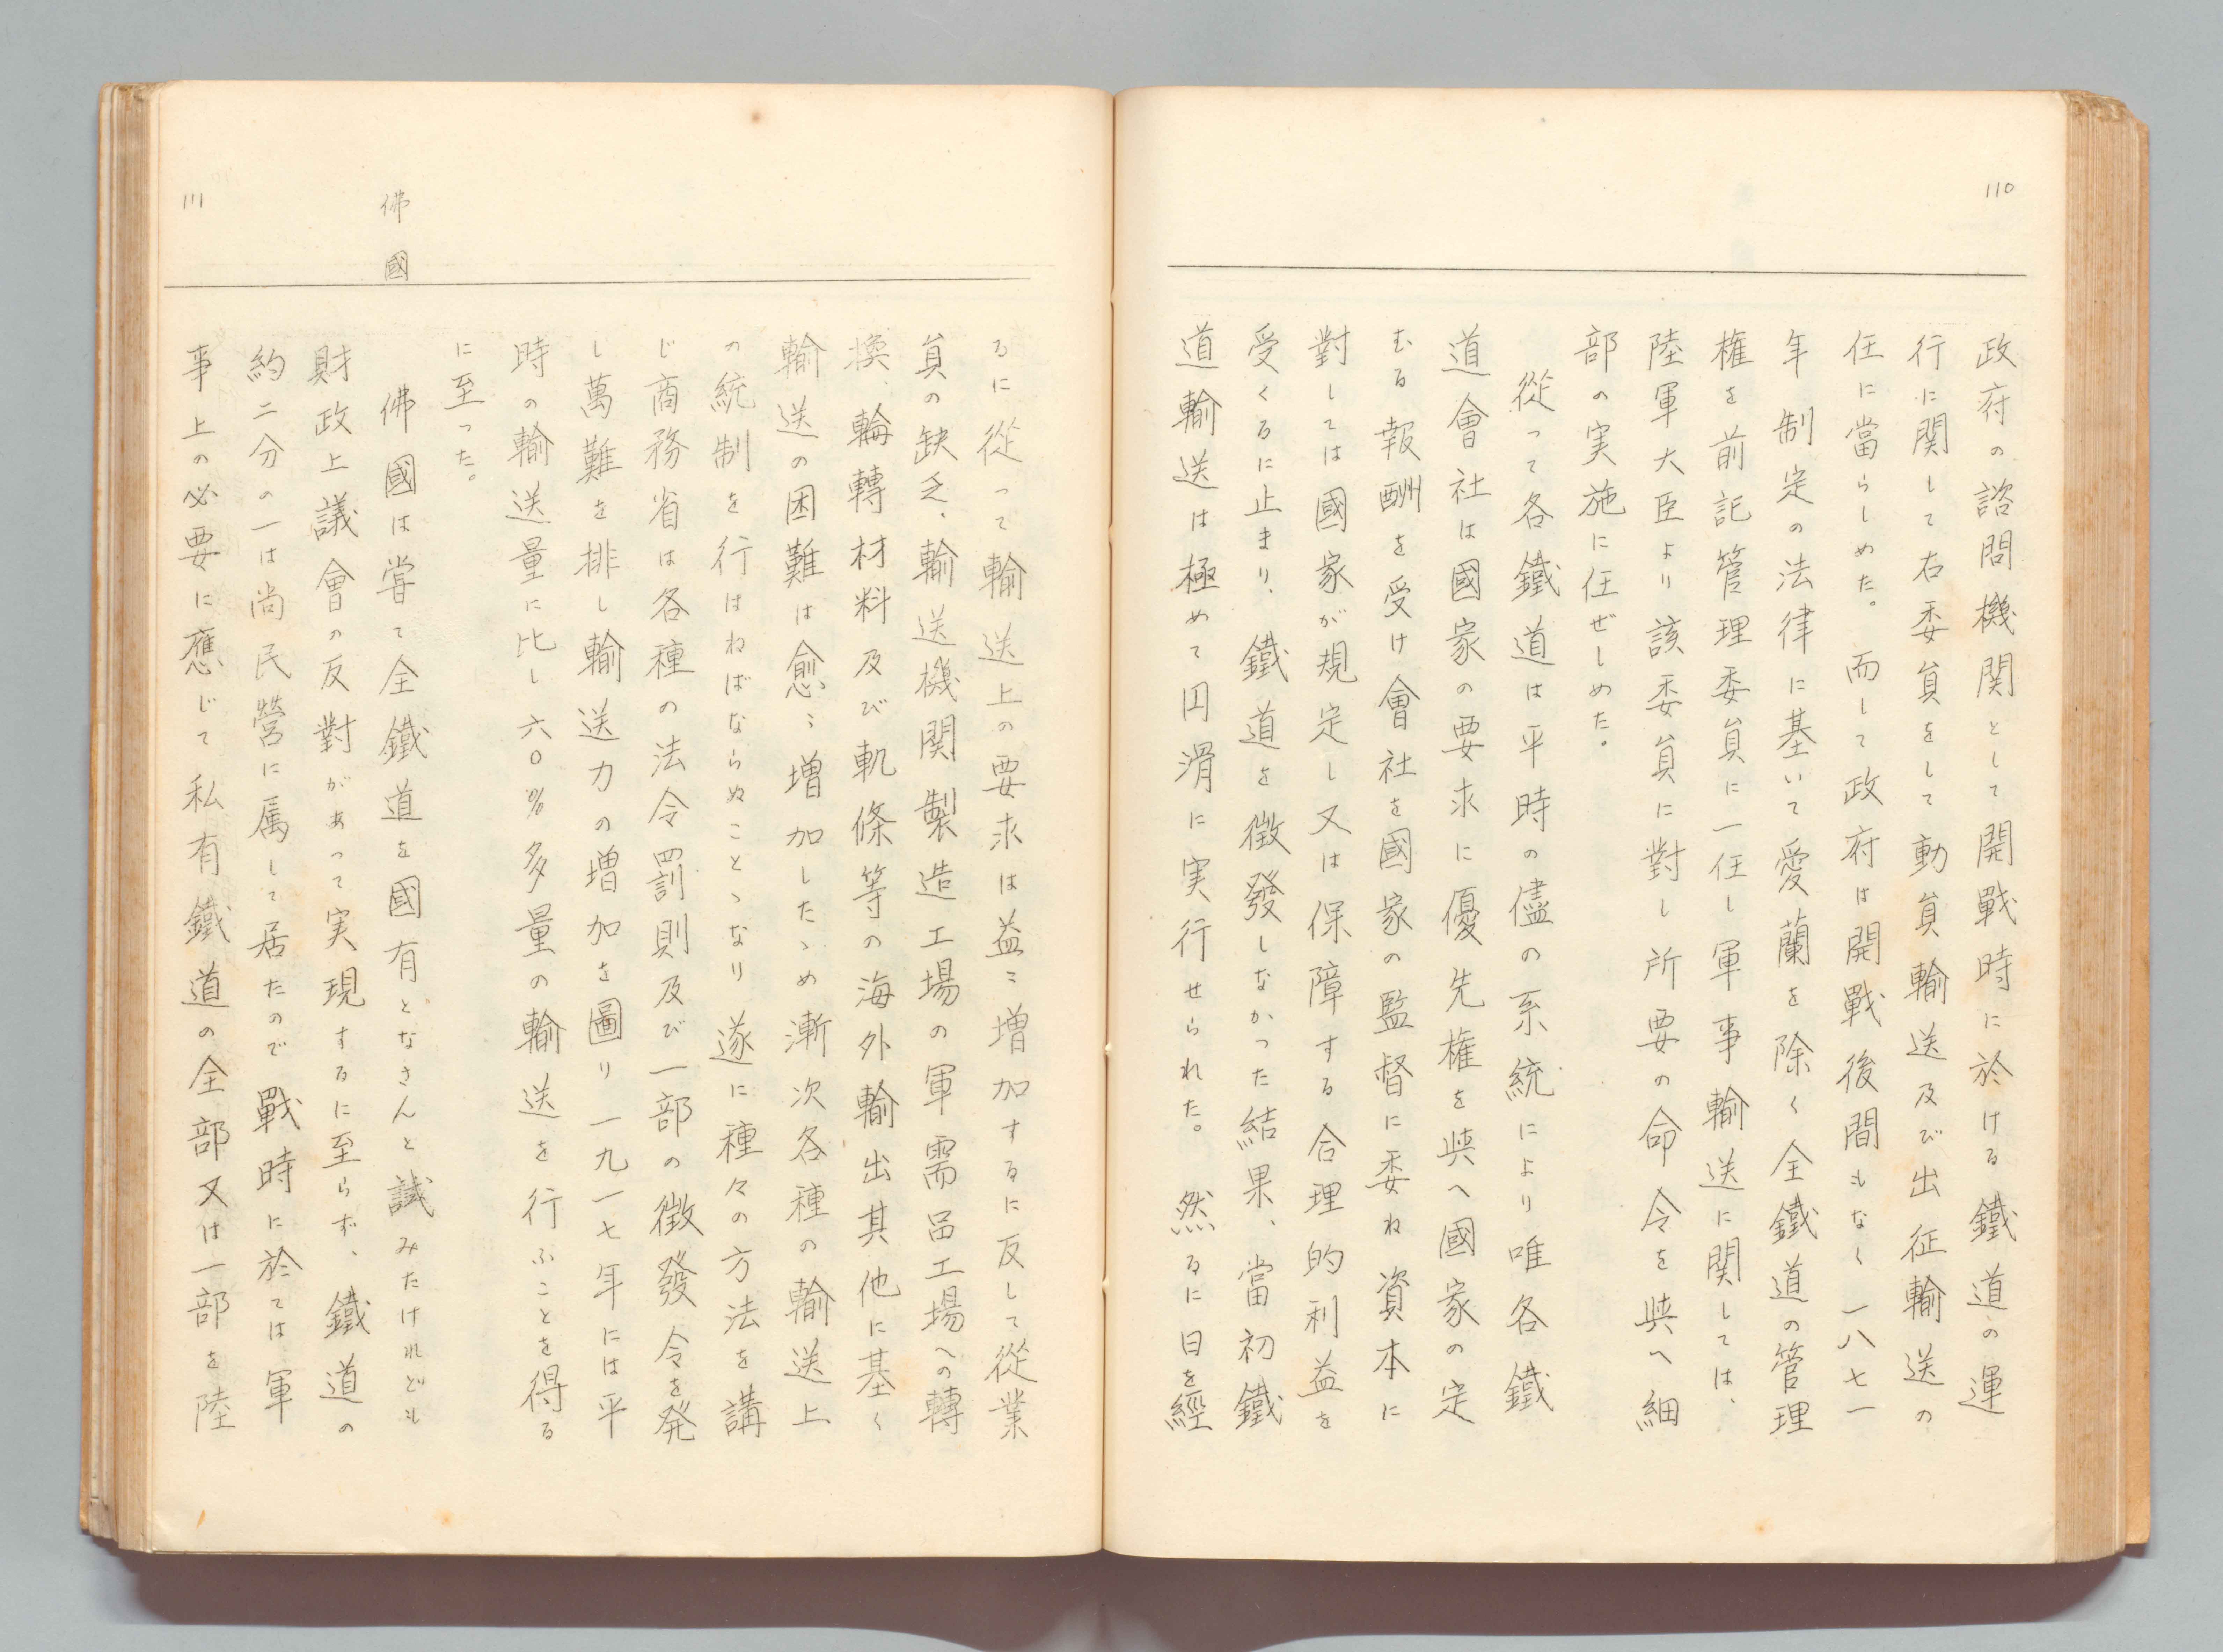 110
政府の諮問機関として開戰時に於ける鐵道の運
行に関して右委員をして動員輸送及び出征輸送の
任に當らしめた。而して政府は開戰後間もなく一八七一
年制定の法律に基いて愛蘭を除く全鐵道の管理
権を前記管理委員に一任し軍事輸送に関しては、
陸軍大臣より該委員に對し所要の命令を與へ細
部の実施に任ぜしめた。
從って各鐵道は平時の儘の系統により唯各鐵
道會社は國家の要求に優先権を與へ國家の定
むる報酬を受け會社を國家の監督に委ね資本に
對しては國家が規定し又は保障する合理的利益を
受くるに止まり、鐵道を徴發しなかった結果、當初鐵
道輸送は極めて円滑に実行せられた。然るに日を經
るに從って輸送上の要求は益〻増加するに反して從業
員の缺乏、輸送機関製造工場の軍需品工場への轉
換、輪轉材料及び軌條等の海外輸出其他に基く
輸送の困難は愈〻増加したゝめ漸次各種の輸送上
の統制を行はねばならぬことゝなり遂に種々の方法を講
じ商務省は各種の法令罰則及び一部の徴發令を発
し萬難を排し輸送力の増加を圖り一九一七年には平
時の輸送量に比し六〇%多量の輸送を行ふことを得る
に至った。
佛國
佛國は嘗て全鐵道を國有となさんと試みたけれども
財政上議會の反對があって実現するに至らず、鐵道の
約二分の一は尚民營に属して居たので戰時に於ては軍
事上の必要に應じて私有鐵道の全部又は一部を陸
111